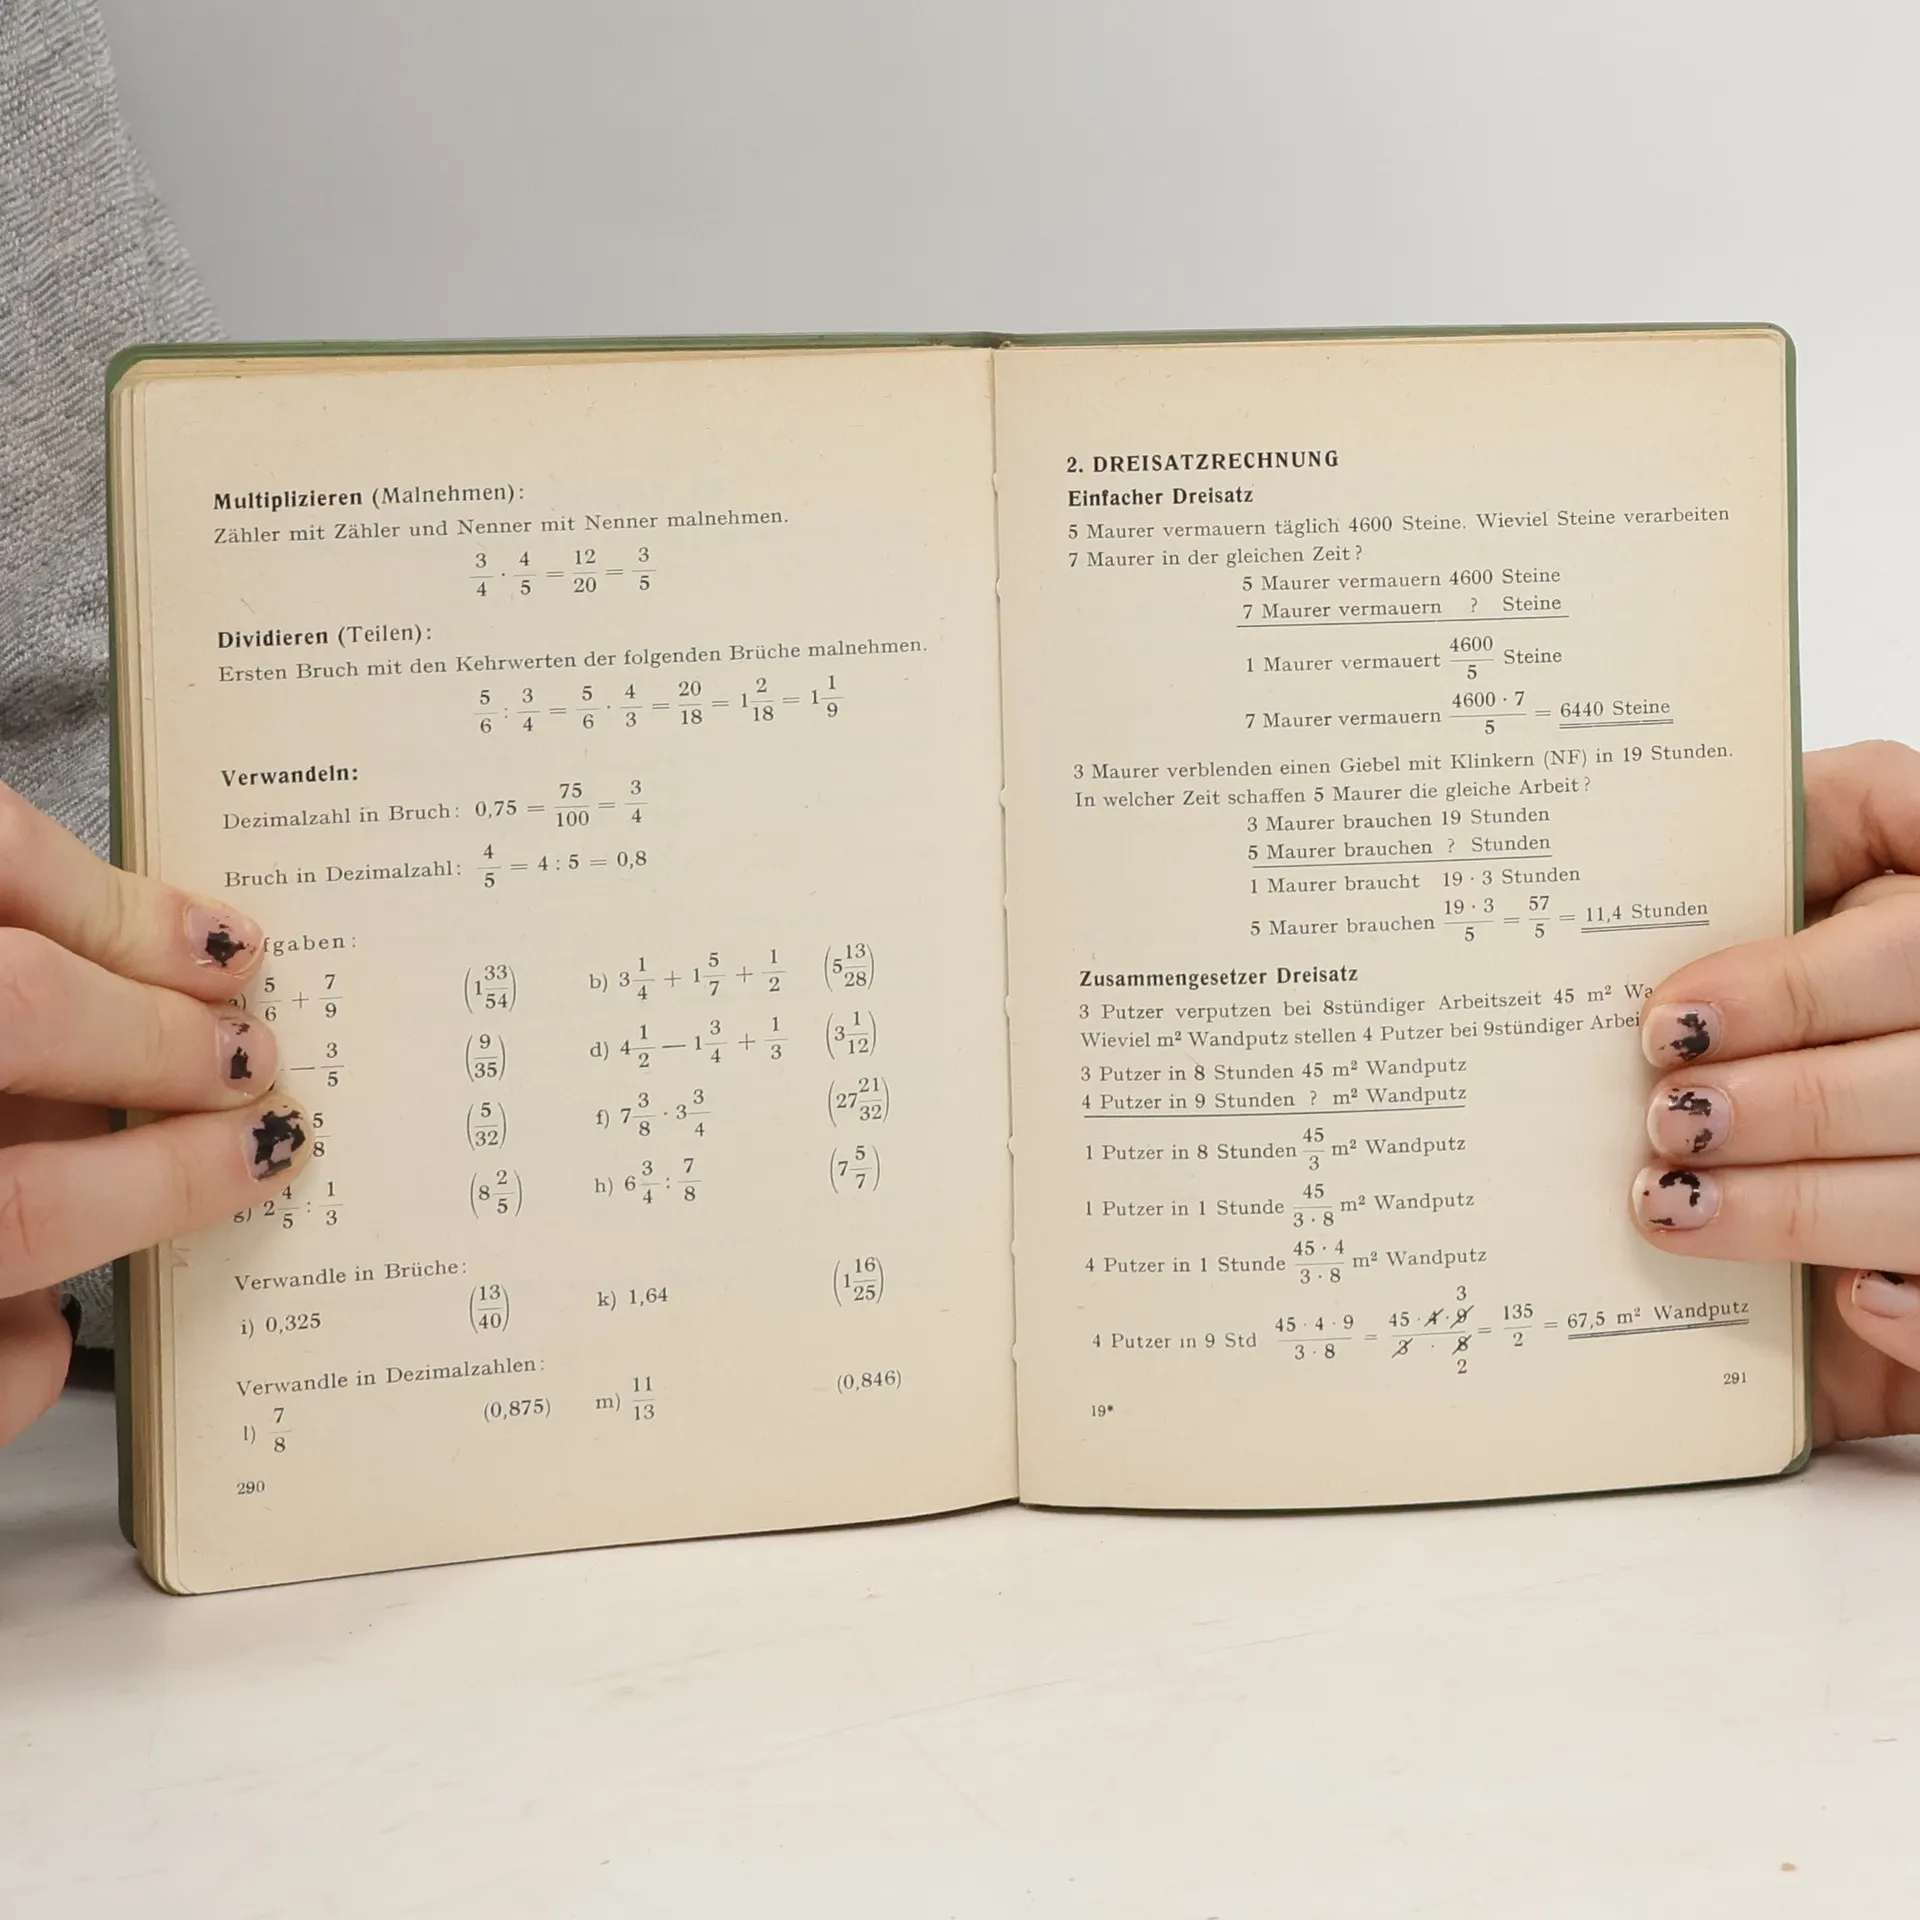 Multiplizieren (Malnehmen):
Zähler mit Zähler und Nenner mit Nenner malnehmen.
3/4 · 4/5 = 12/20 = 3/5
Dividieren (Teilen):
Ersten Bruch mit den Kehrwerten der folgenden Brüche malnehmen.
5/6 : 3/4 = 5/6 · 4/3 = 20/18 = 1 2/18 = 1 1/9
Verwandeln:
Dezimalzahl in Bruch: 0,75 = 75/100 = 3/4
Bruch in Dezimalzahl: 4/5 = 4 : 5 = 0,8
fgaben:
a) 5/6 + 7/9 (1 33/54) b) 3 1/4 + 1 5/7 + 1/2 (5 13/28)
— 3/5 (9/35) d) 4 1/2 — 1 3/4 + 1/3 (3 1/12)
5/8 (5/32) f) 7 3/8 · 3 3/4 (27 21/32)
g) 2 4/5 : 1/3 (8 2/5) h) 6 3/4 : 7/8 (7 5/7)
Verwandle in Brüche:
i) 0,325 (13/40) k) 1,64 (1 16/25)
Verwandle in Dezimalzahlen:
l) 7/8 (0,875) m) 11/13 (0,846)
290
2. DREISATZRECHNUNG
Einfacher Dreisatz
5 Maurer vermauern täglich 4600 Steine. Wieviel Steine verarbeiten
7 Maurer in der gleichen Zeit?
5 Maurer vermauern 4600 Steine
7 Maurer vermauern ? Steine
1 Maurer vermauert 4600/5 Steine
7 Maurer vermauern 4600 · 7/5 = 6440 Steine
3 Maurer verblenden einen Giebel mit Klinkern (NF) in 19 Stunden.
In welcher Zeit schaffen 5 Maurer die gleiche Arbeit?
3 Maurer brauchen 19 Stunden
5 Maurer brauchen ? Stunden
1 Maurer braucht 19 · 3 Stunden
5 Maurer brauchen 19 · 3/5 = 57/5 = 11,4 Stunden
Zusammengesetzer Dreisatz
3 Putzer verputzen bei 8stündiger Arbeitszeit 45 m² Wa
Wieviel m² Wandputz stellen 4 Putzer bei 9stündiger Arbei
3 Putzer in 8 Stunden 45 m² Wandputz
4 Putzer in 9 Stunden ? m² Wandputz
1 Putzer in 8 Stunden 45/3 m² Wandputz
1 Putzer in 1 Stunde 45/3 · 8 m² Wandputz
4 Putzer in 1 Stunde 45 · 4/3 · 8 m² Wandputz
3
4 Putzer in 9 Std 45 · 4 · 9/3 · 8 = 45 · 4 · 9/3 · 8 = 135/2 = 67,5 m² Wandputz
2
291
19*